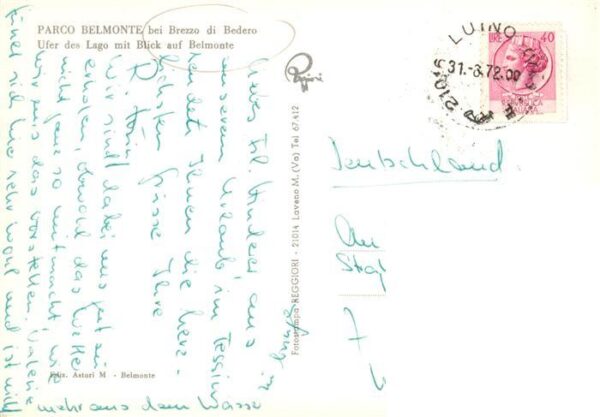 PARCO BELMONTE bei Brezzo di Bedero
Ufer des Lago mit Blick auf Belmonte
Liebes Frl. Hinderer, aus
unserem Urlaub im Tessin
sendet Ihnen die herz-
lichsten Grüsse Ihre
Wir sind dabei uns gut zu
erholen, obwohl das Wetter
nicht ganz so mitmacht, wie
wir uns das vorstellen. Valerie
findet sich hier sehr wohl und ist nicht
mehr aus dem Wasser
zu bringen
Ediz. Astori M - Belmonte
Fotostampa REGGIORI - 21014 Laveno M. (Va) Tel 67.412
Reggiori
LUINO
31.-8.72.00
21016
LIRE 40
REPUBBLICA ITALIANA
Deutschland
An